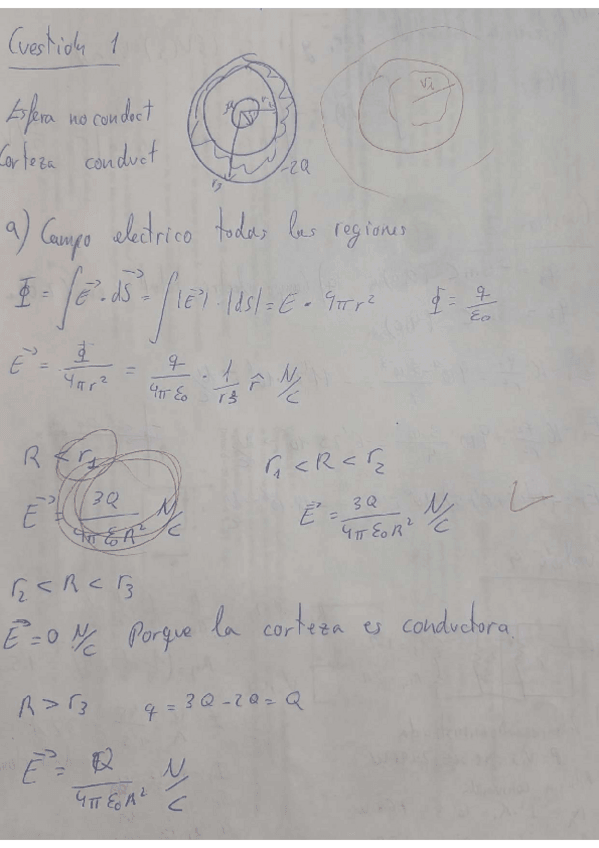 Cuestión 1
Esfera no conduct
Corteza conduct
r3
-2Q
a) Campo electrico todas las regiones
Φ = ∫E⃗ · dS⃗ = ∫|E⃗| · |dS| = E · 4πr² Φ = q/ε₀
E⃗ = Φ/4πr² = q/4πε₀ · 1/r² r̂ N/C
R < r1 r1 < R < r2
E⃗ = 3Q/4πε₀R² N/C E⃗ = 3Q/4πε₀R² N/C
r2 < R < r3
E⃗ = 0 N/C Porque la corteza es conductora.
R > r3 q = 3Q - 2Q = Q
E⃗ = Q/4πε₀R² N/C